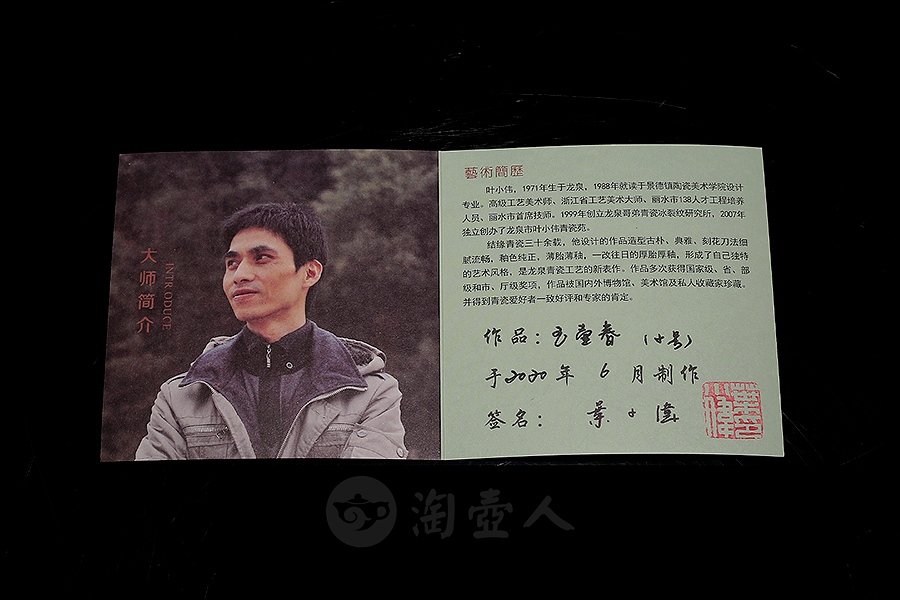 大师简介
INTRODUCE
藝術簡歷
叶小伟，1971年生于龙泉，1988年就读于景德镇陶瓷美术学院设计
专业。高级工艺美术师、浙江省工艺美术大师、丽水市138人才工程培养
人员、丽水市首席技师。1999年创立龙泉哥弟青瓷冰裂纹研究所，2007年
独立创办了龙泉市叶小伟青瓷苑。
结缘青瓷三十余载，他设计的作品造型古朴、典雅、刻花刀法细
腻流畅，釉色纯正，薄胎薄釉，一改往日的厚胎厚釉，形成了自己独特
的艺术风格，是龙泉青瓷工艺的新表作。作品多次获得国家级、省、部
级和市、厅级奖项，作品被国内外博物馆、美术馆及私人收藏家珍藏。
并得到青瓷爱好者一致好评和专家的肯定。
作品：玉壶春（小号）
于2020年 6 月制作
签名：葉小偉
淘壶人